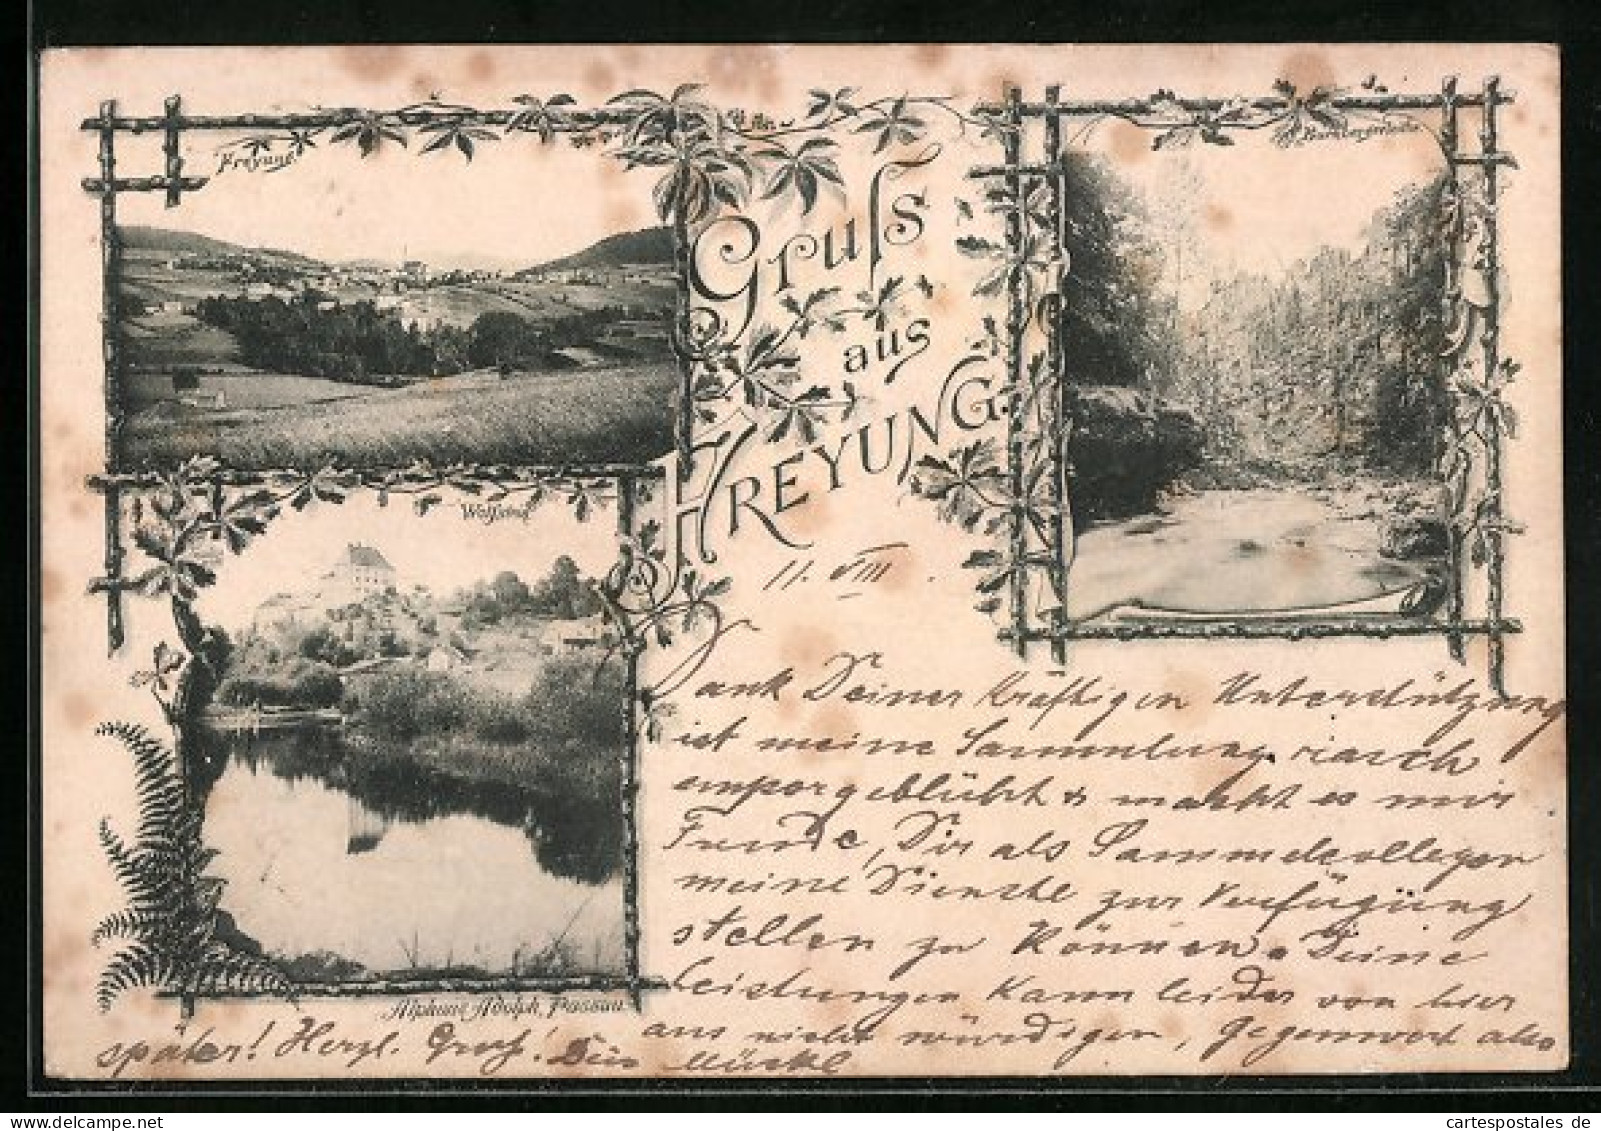 Freyung
Gruss
aus
FREYUNG
11. VIII.
Dank Deiner kräftigen Unterstützung
ist meine Sammlung rasch
emporgeblüht & macht es mir
Freude, Dir als Sammelcollegen
meine Dienste zur Verfügung
stellen zu können. Deine
Leistungen kann leider von hier
aus nicht würdigen, Gegenwert also
später! Herzl. Gruß! Dein
Alphons Adolph, Passau
cartespostales.de